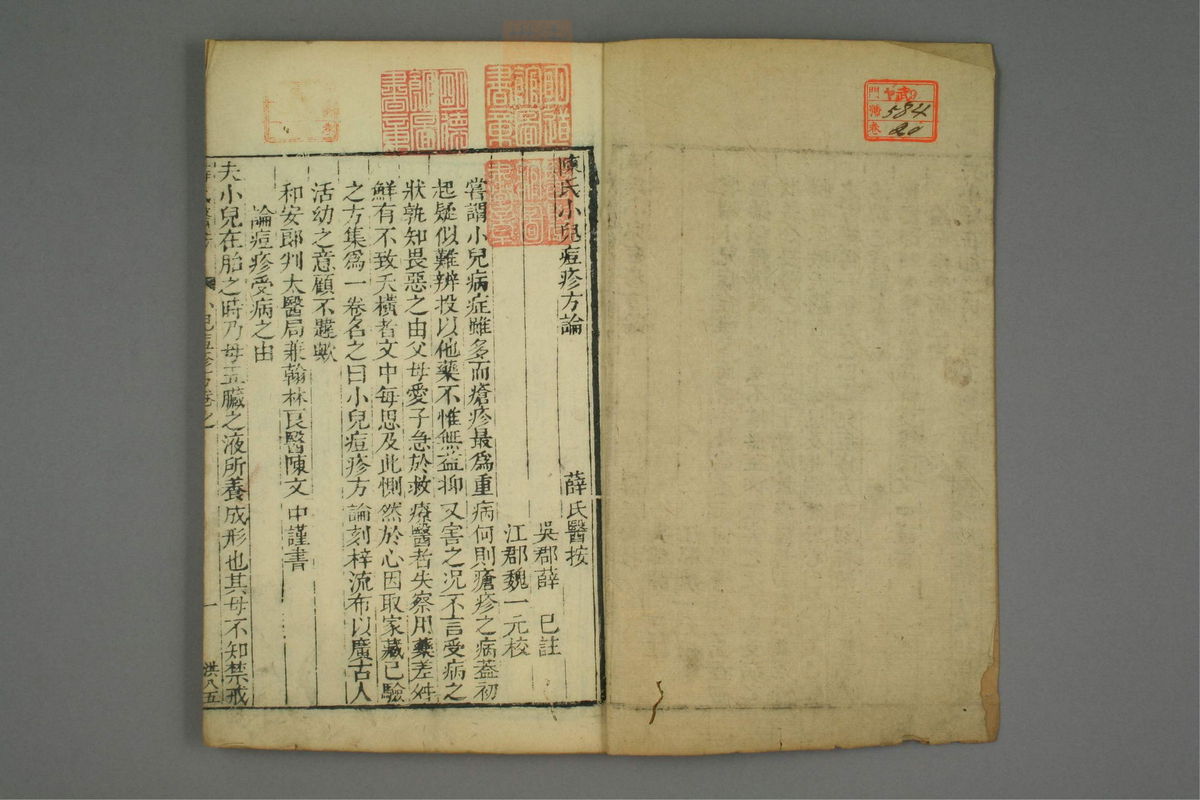 門 武
番 584
卷 20
陳氏小兒痘疹方論
薛氏醫按
吳郡薛 已註
江郡魏一元校
嘗謂小兒病症雖多而瘡疹最爲重病何則瘡疹之病蓋初
起疑似難辨投以他藥不惟無益抑又害之况不言受病之
狀孰知畏惡之由父母愛子急於救療醫者失察用藥差舛
鮮有不致夭橫者文中每思及此惻然於心因取家藏已驗
之方集爲一卷名之曰小兒痘疹方論刻梓流布以廣古人
活幼之意顧不韙歟
和安郎判太醫局兼翰林良醫陳文中謹書
論痘疹受病之由
夫小兒在胎之時乃母五臟之液所養成形也其母不知禁戒
小兒痘疹方卷之一
洪八五